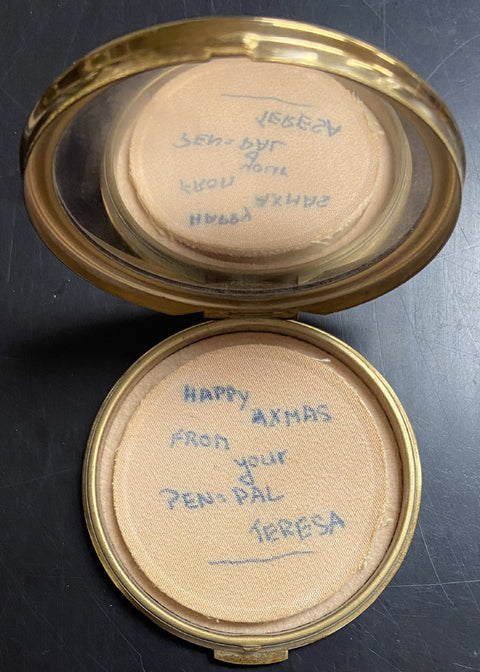 HAPPY
AXMAS
FROM
your
PEN=PAL
TERESA